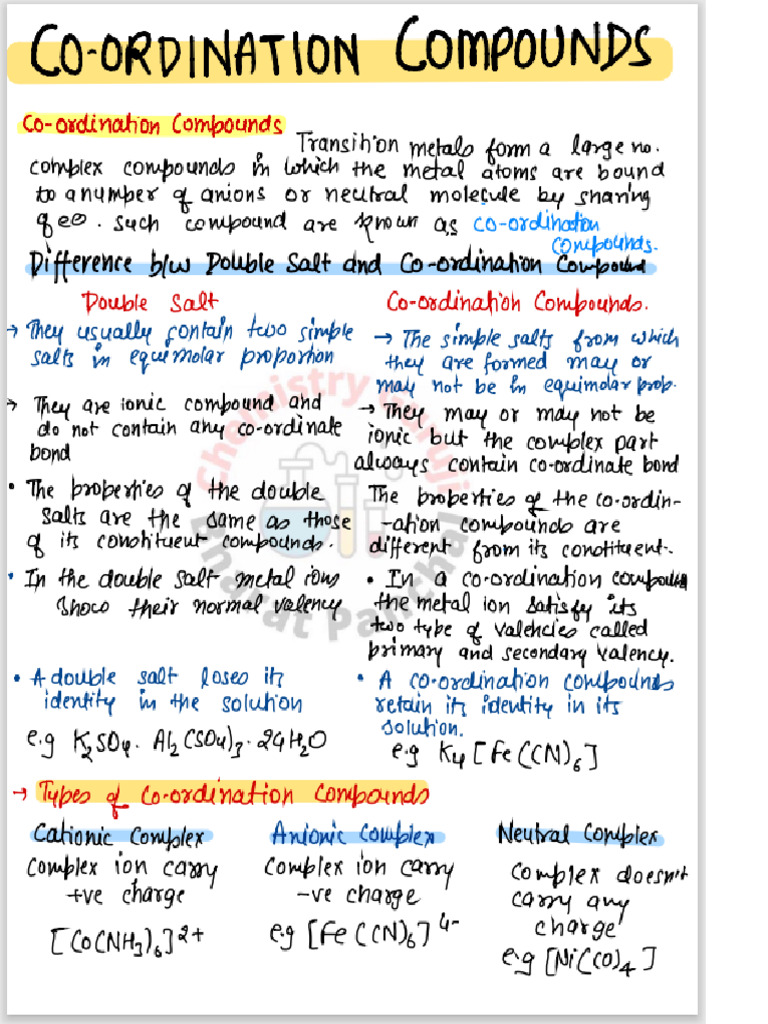 CO-ORDINATION COMPOUNDS
Co-ordination Compounds
Transition metals form a large no.
complex compounds in which the metal atoms are bound
to a number of anions or neutral molecule by sharing
of ee. such compound are known as co-ordination
compounds.
Difference b/w Double Salt and Co-ordination Compound
Double Salt
→ They usually contain two simple
salts in equimolar proportion
→ They are ionic compound and
do not contain any co-ordinate
bond
• The properties of the double
salts are the same as those
of its constituent compounds.
• In the double salt metal ions
show their normal valency
• A double salt loses its
identity in the solution
e.g K2SO4. Al2(SO4)3. 24H2O
Co-ordination Compounds.
→ The simple salts from which
they are formed may or
may not be in equimolar prop.
→ They may or may not be
ionic but the complex part
always contain co-ordinate bond
The properties of the co-ordin-
-ation compounds are
different from its constituent.
• In a co-ordination compound
the metal ion satisfy its
two type of valencies called
primary and secondary valency.
• A co-ordination compounds
retain its identity in its
solution.
e.g K4[Fe(CN)6]
→ Types of Co-ordination Compounds
Cationic Complex
Complex ion carry
+ve charge
[Co(NH3)6]2+
Anionic Complex
Complex ion carry
-ve charge
e.g [Fe(CN)6]4-
Neutral Complex
Complex doesn't
carry any
charge
e.g [Ni(CO)4]
Chemistry Guruji
Bharat Panchal